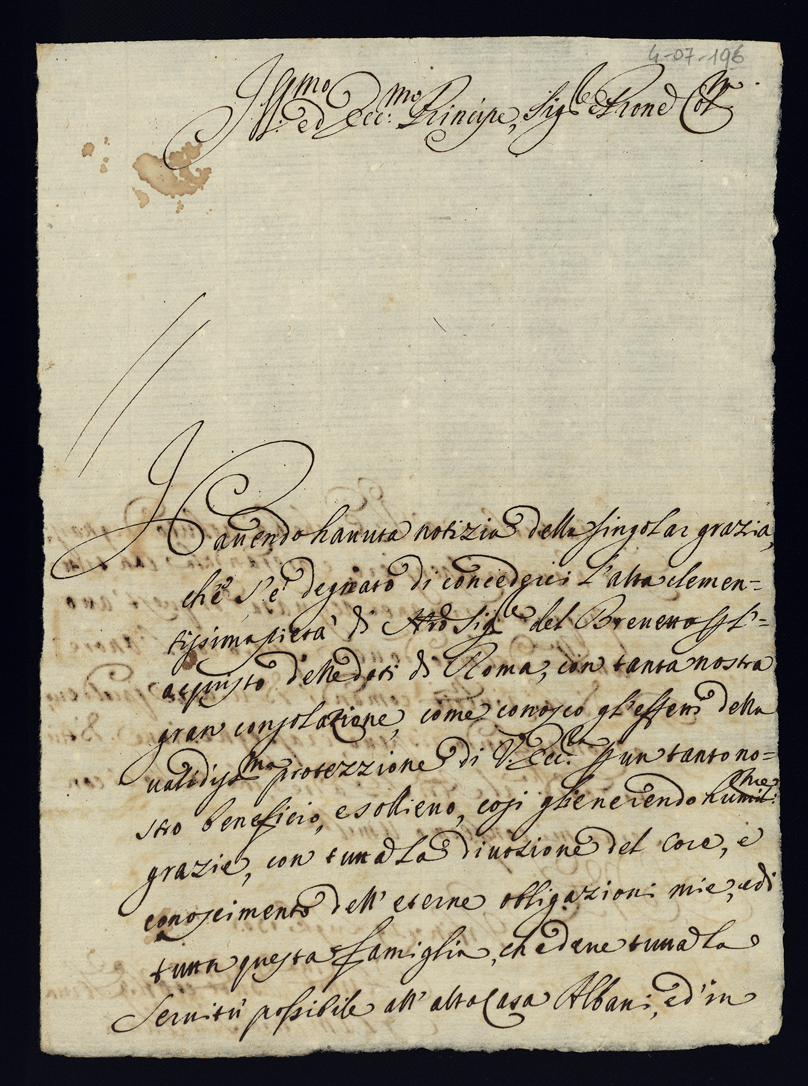 4-07-196
Ill.mo ed Ecc.mo Principe, Sig.re e Prone Col.mo
Havendo havuta notizia della singolar grazia,
che s'è degnato di concederci l'alta clemen=
tissima pietà di Nro Sig.re del Brevetto p l'=
acquisto delle doti di Roma, con tanta nostra
gran consolazione, come conosco gl'effetti della
validiss.ma protezzione di V. Ecc.za p un tanto no=
stro beneficio, e sollievo, così gliene rendo humil.me
grazie, con tutta la divozione del core, e
conoscimento dell'eterne obbligazioni mie, e di
tutta questa famiglia, che deve tutta la
servitù possibile all'alta Casa Albani, ed in